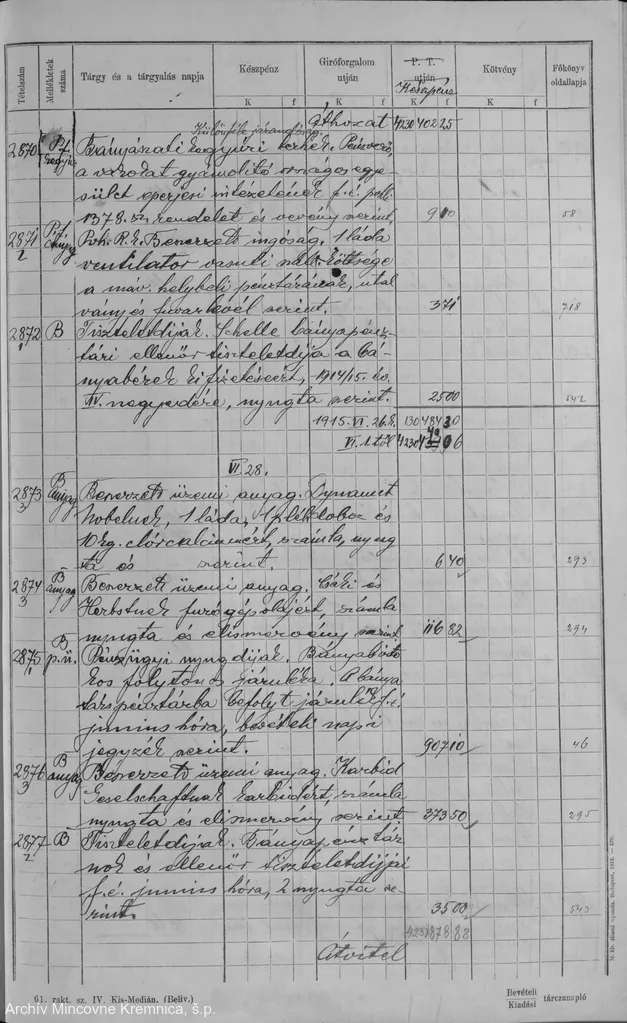 Tételszám
Mellékletek száma
Tárgy és a tárgyalás napja
Készpénz
K f
Giróforgalom utján
K f
P. T. utján
Készpénz
K f
Kötvény
K f
Főkönyv oldallapja
Különféle járandóság.
Áthozat 4230 402 25
2870 Pf. Bányászati kegyúri terhek.
a vasodat gyámolitó országos egye-
sület eperjesi intézetének f. é.
1378. sz. rendelet és vevény szerint, 9 10 58
2871 Pvh. R. k. Beszerzett ingóság. 1 láda
ventilator vasuti száll. költsége
a máv. helybeli pénztárának, utal
vány és fuvarlevél szerint. 3 71 718
2872 B Tiszteletdijak. Schelle bányapénz-
tári ellenőr tiszteletdija a bá-
nyabérek kifizetéseért, 1914/15. év.
IV. negyedére, nyugta szerint. 25 00 542
1915. VI. 26.
VI. 1. től
VI. 28.
2873 B anyag Beszerzett üzemi anyag. Dynamit
Nobelnek, 1 láda, 1 pléhdoboz és
10 kg. clórcalciumért, számla, nyug
ta és szerint. 6 40 293
2874 B anyag Beszerzett üzemi anyag. Cáki és
Herbstnek furógépolajért, számla
nyugta és elismervény szerint, 116 82 294
2875 B p. ü. Pénzügyi nyugdijak.
kos folytonos járuléka. A bánya
társpénztárba befolyt járulék f. é.
junius hóra, bevételi napi
jegyzék szerint. 907 10 46
2876 B anyag Beszerzett üzemi anyag. Karbid
Geselschaftnak karbidért, számla
nyugta és elismervény szerint 373 50 295
2877 B Tiszteletdijak. Bányapénztár
nok és ellenőr tiszteletdijjai
f. é. junius hóra, 2 nyugta sze-
rint. 35 00 543
Átvitel
61. rakt. sz. IV. Kis-Medián. (Beliv.)
Bevételi
Kiadási tárczanapló
Archív Mincovne Kremnica, š.p.